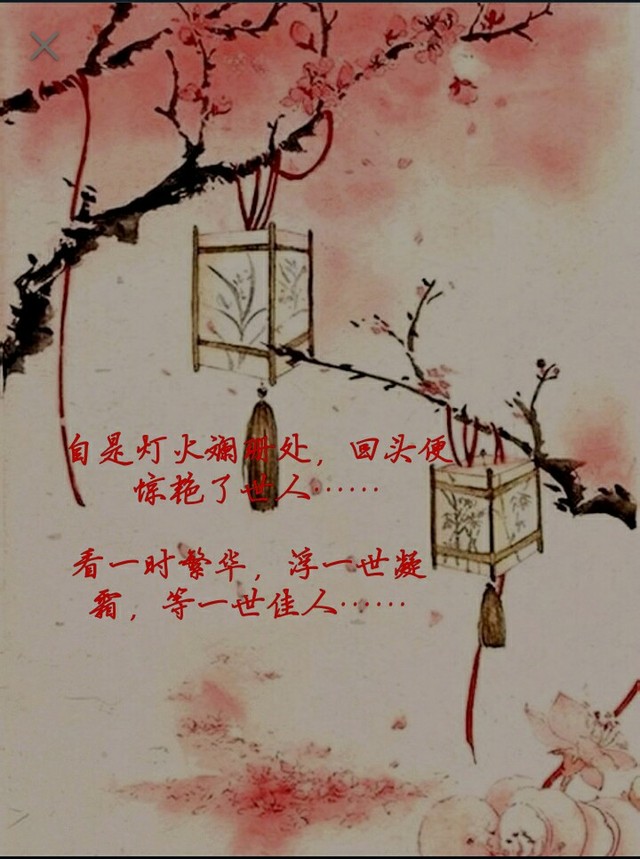 自是灯火斓珊处，回头便
惊艳了世人……
看一时繁华，浮一世凝
霜，等一世佳人……